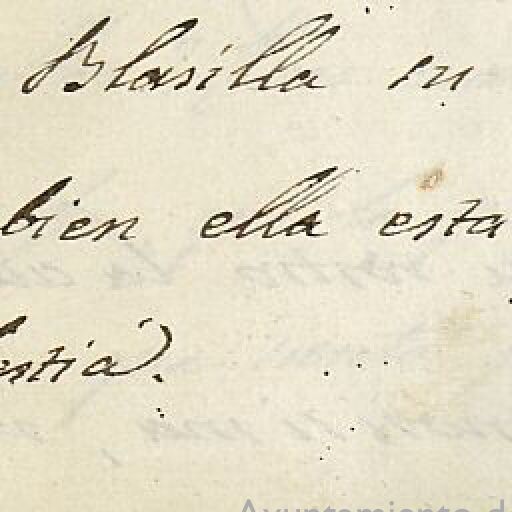 Blasilla in
bien ella esta
estia.
Ayuntamiento d